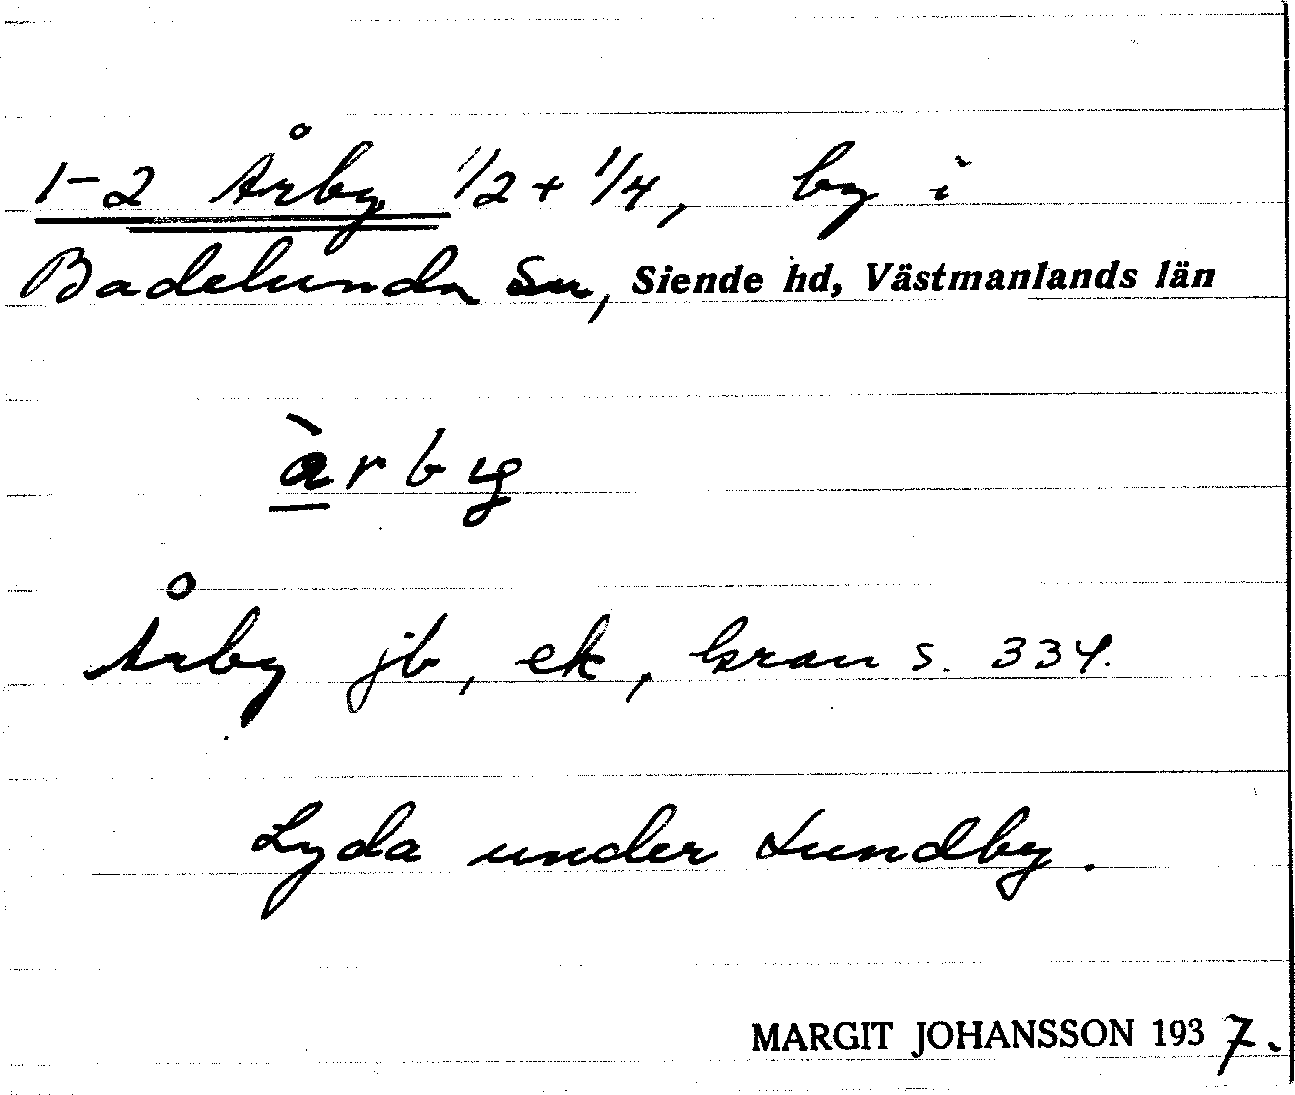 1-2 Årby 1/2 + 1/4, by i
Badelunda sn, Siende hd, Västmanlands län
àrby
Årby jb, ek, kran s. 334.
Lyda under Lundby.
MARGIT JOHANSSON 1937.